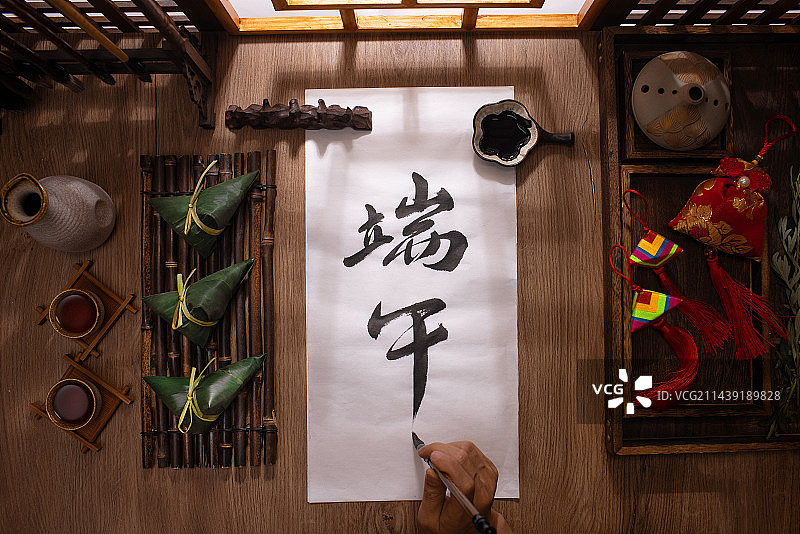 端
午
VCG
VCG.COM/1439189828